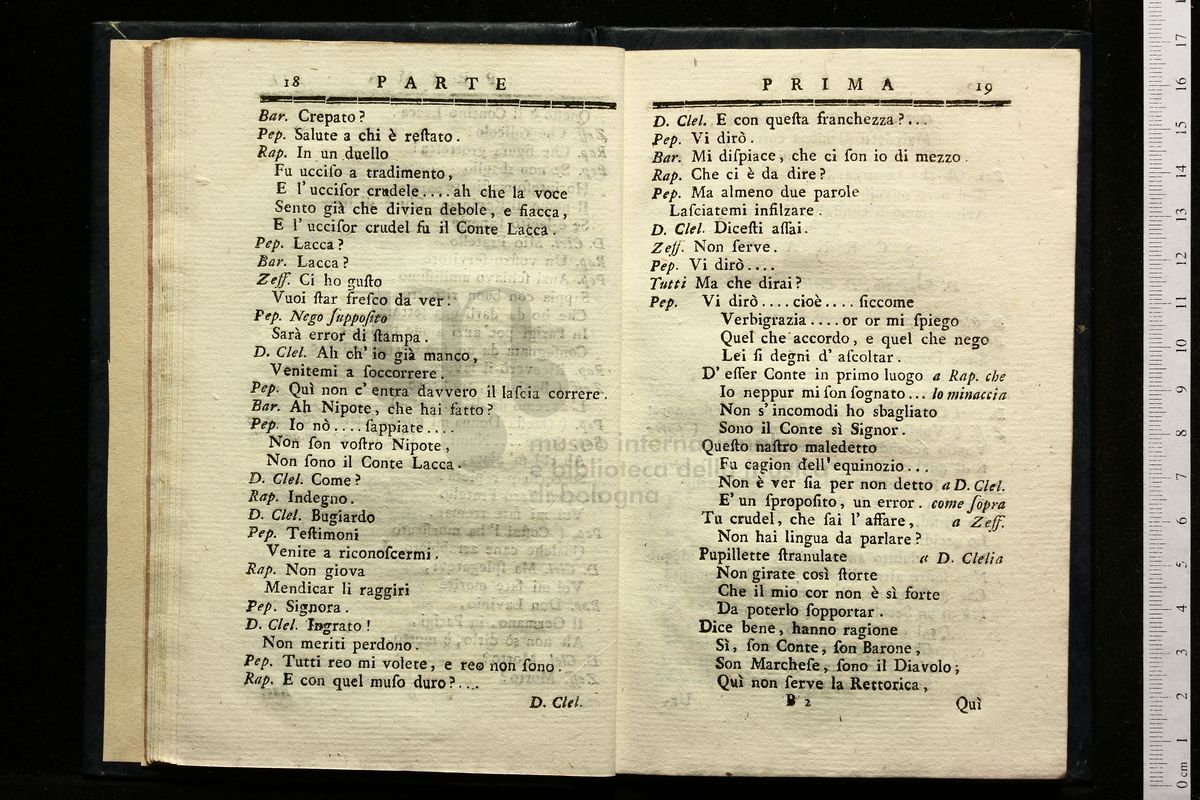 18 PARTE
Bar. Crepato?
Pep. Salute a chi è reſtato.
Rap. In un duello
Fu ucciſo a tradimento,
E l'ucciſor crudele.... ah che la voce
Sento già che divien debole, e fiacca,
E l'ucciſor crudel fu il Conte Lacca.
Pep. Lacca?
Bar. Lacca?
Zeff. Ci ho guſto
Vuoi ſtar freſco da ver!
Pep. Nego ſuppoſito
Sarà error di ſtampa.
D. Clel. Ah ch'io già manco,
Venitemi a ſoccorrere.
Pep. Quì non c'entra davvero il laſcia correre.
Bar. Ah Nipote, che hai fatto?
Pep. Io nò.... ſappiate....
Non ſon voſtro Nipote,
Non ſono il Conte Lacca.
D. Clel. Come?
Rap. Indegno.
D. Clel. Bugiardo
Pep. Teſtimoni
Venite a riconoſcermi.
Rap. Non giova
Mendicar li raggiri
Pep. Signora.
D. Clel. Ingrato!
Non meriti perdono.
Pep. Tutti reo mi volete, e reo non ſono.
Rap. E con quel muſo duro?....
D. Clel.
PRIMA 19
D. Clel. E con queſta franchezza?...
Pep. Vi dirò.
Bar. Mi diſpiace, che ci ſon io di mezzo.
Rap. Che ci è da dire?
Pep. Ma almeno due parole
Laſciatemi infilzare.
D. Clel. Diceſti aſſai.
Zeff. Non ſerve.
Pep. Vi dirò....
Tutti Ma che dirai?
Pep. Vi dirò.... cioè.... ſiccome
Verbigrazia.... or or mi ſpiego
Quel che accordo, e quel che nego
Lei ſi degni d'aſcoltar.
D'eſſer Conte in primo luogo a Rap. che
Io neppur mi ſon ſognato... lo minaccia
Non s'incomodi ho sbagliato
Sono il Conte sì Signor.
Queſto naſtro maledetto
Fu cagion dell'equinozio...
Non è ver ſia per non detto a D. Clel.
E' un ſpropoſito, un error. come ſopra
Tu crudel, che ſai l'affare, a Zeff.
Non hai lingua da parlare?
Pupillette ſtranulate a D. Clelia
Non girate così ſtorte
Che il mio cor non è sì forte
Da poterlo ſopportar.
Dice bene, hanno ragione
Sì, ſon Conte, ſon Barone,
Son Marcheſe, ſono il Diavolo;
Quì non ſerve la Rettorica,
B 2 Quì
museo interna
e biblioteca della musica
di bologna
0 cm 1 2 3 4 5 6 7 8 9 10 11 12 13 14 15 16 17